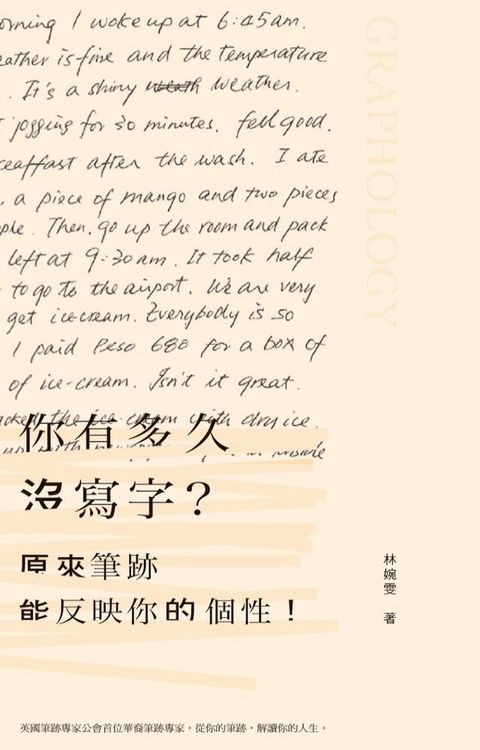 orning I woke up at 6:45am.
eather is fine and the temperature
. It's a shiny weath weather.
t jogging for 30 minutes. fell good.
reaffast after the wash. I ate
, a piece of mango and two pieces
ple. Then, go up the room and pack
left at 9:30am. It took half
to go to the airport. We are very
get ice-cream. Everybody is so
I paid Peso 680 for a box of
of ice-cream. Isn't it great.
acked the ice-cream with dry ice.
GRAPHOLOGY
你有多久
沒寫字？
原來筆跡
能反映你的個性！
林婉雯 著
英國筆跡專家公會首位華裔筆跡專家。從你的筆跡，解讀你的人生。